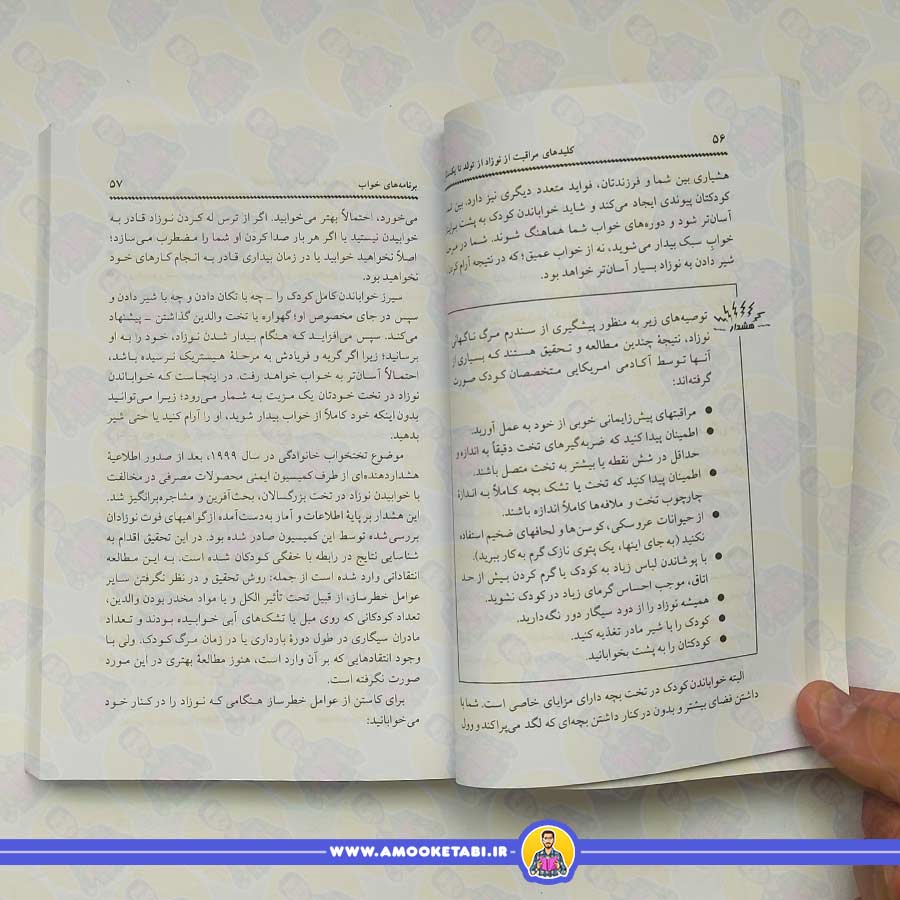 ۵۶
کلیدهای مراقبت از نوزاد از تولد تا یک
هشیاری بین شما و فرزندتان، فواید متعدد دیگری نیز دارد. بین
کودکتان پیوندی ایجاد می‌کند و شاید خواباندن کودک به پشت برای
آسان‌تر شود و دوره‌های خواب شما هماهنگ شوند. شما در
خواب سبک بیدار می‌شوید، نه از خواب عمیق؛ که در نتیجه آرام کردن
شیر دادن به نوزاد بسیار آسان‌تر خواهد بود.
هشدار
توصیه‌های زیر به منظور پیشگیری از سندرم مرگ ناگهانی
نوزاد، نتیجهٔ چندین مطالعه و تحقیق هستند که بسیاری از
آنها توسط آکادمی امریکایی متخصصان کودک صورت
گرفته‌اند:
● مراقبتهای پیش‌زایمانی خوبی از خود به عمل آورید.
● اطمینان پیدا کنید که ضربه‌گیرهای تخت دقیقاً به اندازه و
حداقل در شش نقطه یا بیشتر به تخت متصل باشند.
● اطمینان پیدا کنید که تخت یا تشک بچه کاملاً به اندازهٔ
چارچوب تخت و ملافه‌ها کاملاً اندازه باشند.
● از حیوانات عروسکی، کوسن‌ها و لحافهای ضخیم استفاده
نکنید (به جای اینها، یک پتوی نازک گرم به کار ببرید).
● با پوشاندن لباس زیاد به کودک یا گرم کردن بیش از حد
اتاق، موجب احساس گرمای زیاد در کودک نشوید.
● همیشه نوزاد را از دود سیگار دور نگه دارید.
● کودک را با شیر مادر تغذیه کنید.
● کودکتان را به پشت بخوابانید.
البته خواباندن کودک در تخت بچه دارای مزایای خاصی است. شما با
داشتن فضای بیشتر و بدون در کنار داشتن بچه‌ای که لگد می‌پراکند و وول
برنامه‌های خواب ۵۷
می‌خورد، احتمالاً بهتر می‌خوابید. اگر از ترس له کردن نوزاد قادر به
خوابیدن نیستید یا اگر هر بار صدا کردن او شما را مضطرب می‌سازد؛
اصلاً نخواهید خوابید یا در زمان بیداری قادر به انجام کارهای خود
نخواهید بود.
سیرز خواباندن کامل کودک را ـ چه با تکان دادن و چه با شیر دادن و
سپس در جای مخصوص او؛ گهواره یا تخت والدین گذاشتن ـ پیشنهاد
می‌کند. سپس می‌افزاید که هنگام بیدار شدن نوزاد، خود را به او
برسانید؛ زیرا اگر گریه و فریادش به مرحلهٔ هیستریک نرسیده باشد،
احتمالاً آسان‌تر به خواب خواهد رفت. در اینجاست که خواباندن
نوزاد در تخت خودتان یک مزیت به شمار می‌رود؛ زیرا می‌توانید
بدون اینکه خود کاملاً از خواب بیدار شوید، او را آرام کنید یا حتی شیر
بدهید.
موضوع تختخواب خانوادگی در سال ۱۹۹۹، بعد از صدور اطلاعیهٔ
هشداردهنده‌ای از طرف کمیسیون ایمنی محصولات مصرفی در مخالفت
با خوابیدن نوزاد در تخت بزرگسالان، بحث‌آفرین و مشاجره‌برانگیز شد.
این هشدار بر پایهٔ اطلاعات و آمار به‌دست‌آمده از گواهیهای فوت نوزادان
بررسی‌شده توسط این کمیسیون صادر شده بود. در این تحقیق اقدام به
شناسایی نتایج در رابطه با خفگی کودکان شده است. به این مطالعه
انتقاداتی وارد شده است از جمله: روش تحقیق و در نظر نگرفتن سایر
عوامل خطرساز، از قبیل تحت تأثیر الکل و یا مواد مخدر بودن والدین،
تعداد کودکانی که روی مبل یا تشک‌های آبی خوابیده بودند و تعداد
مادران سیگاری در طول دورهٔ بارداری یا در زمان مرگ کودک. ولی با
وجود انتقادهایی که بر آن وارد است، هنوز مطالعهٔ بهتری در این مورد
صورت نگرفته است.
برای کاستن از عوامل خطرساز هنگامی که نوزاد را در کنار خود
می‌خوابانید:
WWW.AMOOKETABI.IR